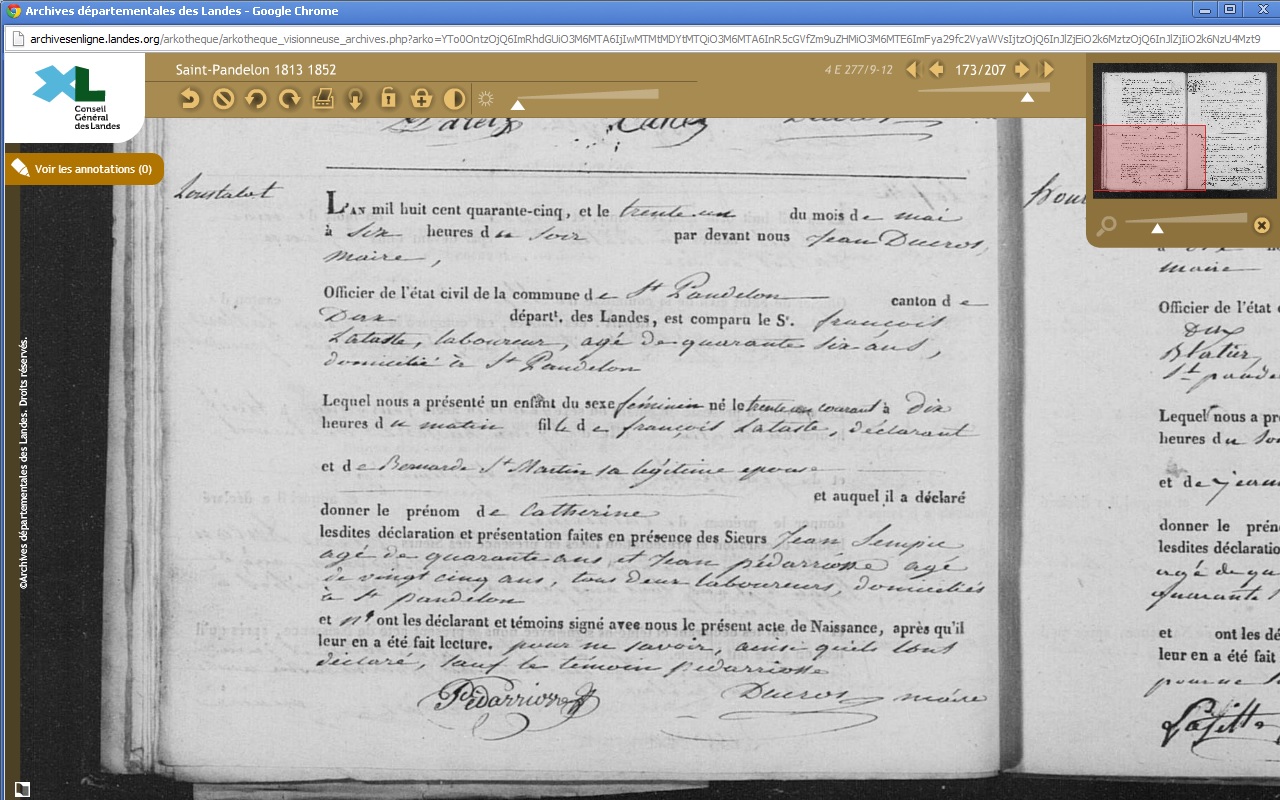 Archives départementales des Landes - Google Chrome
archivesenligne.landes.org/arkotheque/arkotheque_visionneuse_archives.php?arko=
Saint-Pandelon 1813 1852
4 E 277/9-12
173/207
XL
Conseil
Général
des Landes
Voir les annotations (0)
©Archives départementales des Landes. Droits réservés.
Loustalot
L'AN mil huit cent quarante-cinq, et le trente-un du mois de mai
à six heures du soir par devant nous Jean Ducros,
maire,
Officier de l'état civil de la commune de St Pandelon canton de
Dax départt. des Landes, est comparu le Sr. françois
Lataste, laboureur, agé de quarante six ans,
domicilié à St Pandelon
Lequel nous a présenté un enfant du sexe féminin né le trente un courant à dix
heures du matin fille de françois Lataste, déclarant
et de Bernarde St Martin sa légitime epouse
et auquel il a déclaré
donner le prénom de Catherine
lesdites déclaration et présentation faites en présence des Sieurs Jean Sempie
agé de quarante ans et Jean pédarriosse agé
de vingt cinq ans, tous deux laboureurs, domiciliés
à St pandelon
et nt ont les déclarant et témoins signé avec nous le présent acte de Naissance, après qu'il
leur en a été fait lecture. pour ne savoir, ainsi qu'ils l'ont
déclaré, sauf le témoin pédarriosse
Pédarriosse
Ducros maire
maire
Officier de l'état
Dax
St pande
Lequel nous a pr
heures du so
et de jean
donner le prén
lesdites déclaratio
agé de qu
quarante
et ont les dé
leur en a été fait
pour ne
Lafitte